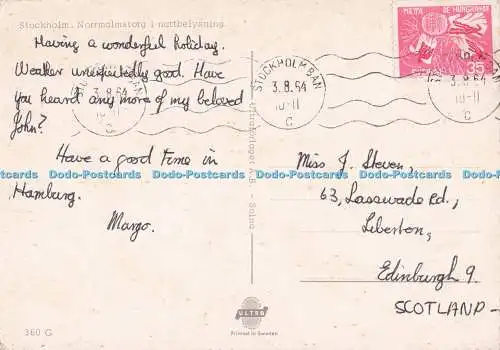 Stockholm. Norrmalmstorg i nattbelysning.
Having a wonderful holiday.
Weather unexpectedly good. Have
you heard any more of my beloved
John?
Have a good time in
Hamburg.
Margo.
MÄTTA DE HUNGRANDE
SVERIGE
35
STOCKHOLM BAN
3.8.64
10-11
C
Ultraförlaget A.B. - Solna
Miss J. Steven,
63, Lasswade Rd.,
Liberton,
Edinburgh 9.
SCOTLAND -
ULTRA
Printed in Sweden
360 C
Dodo-Postcards Dodo-Postcards Dodo-Postcards Dodo-Postcards Dodo-Postcards